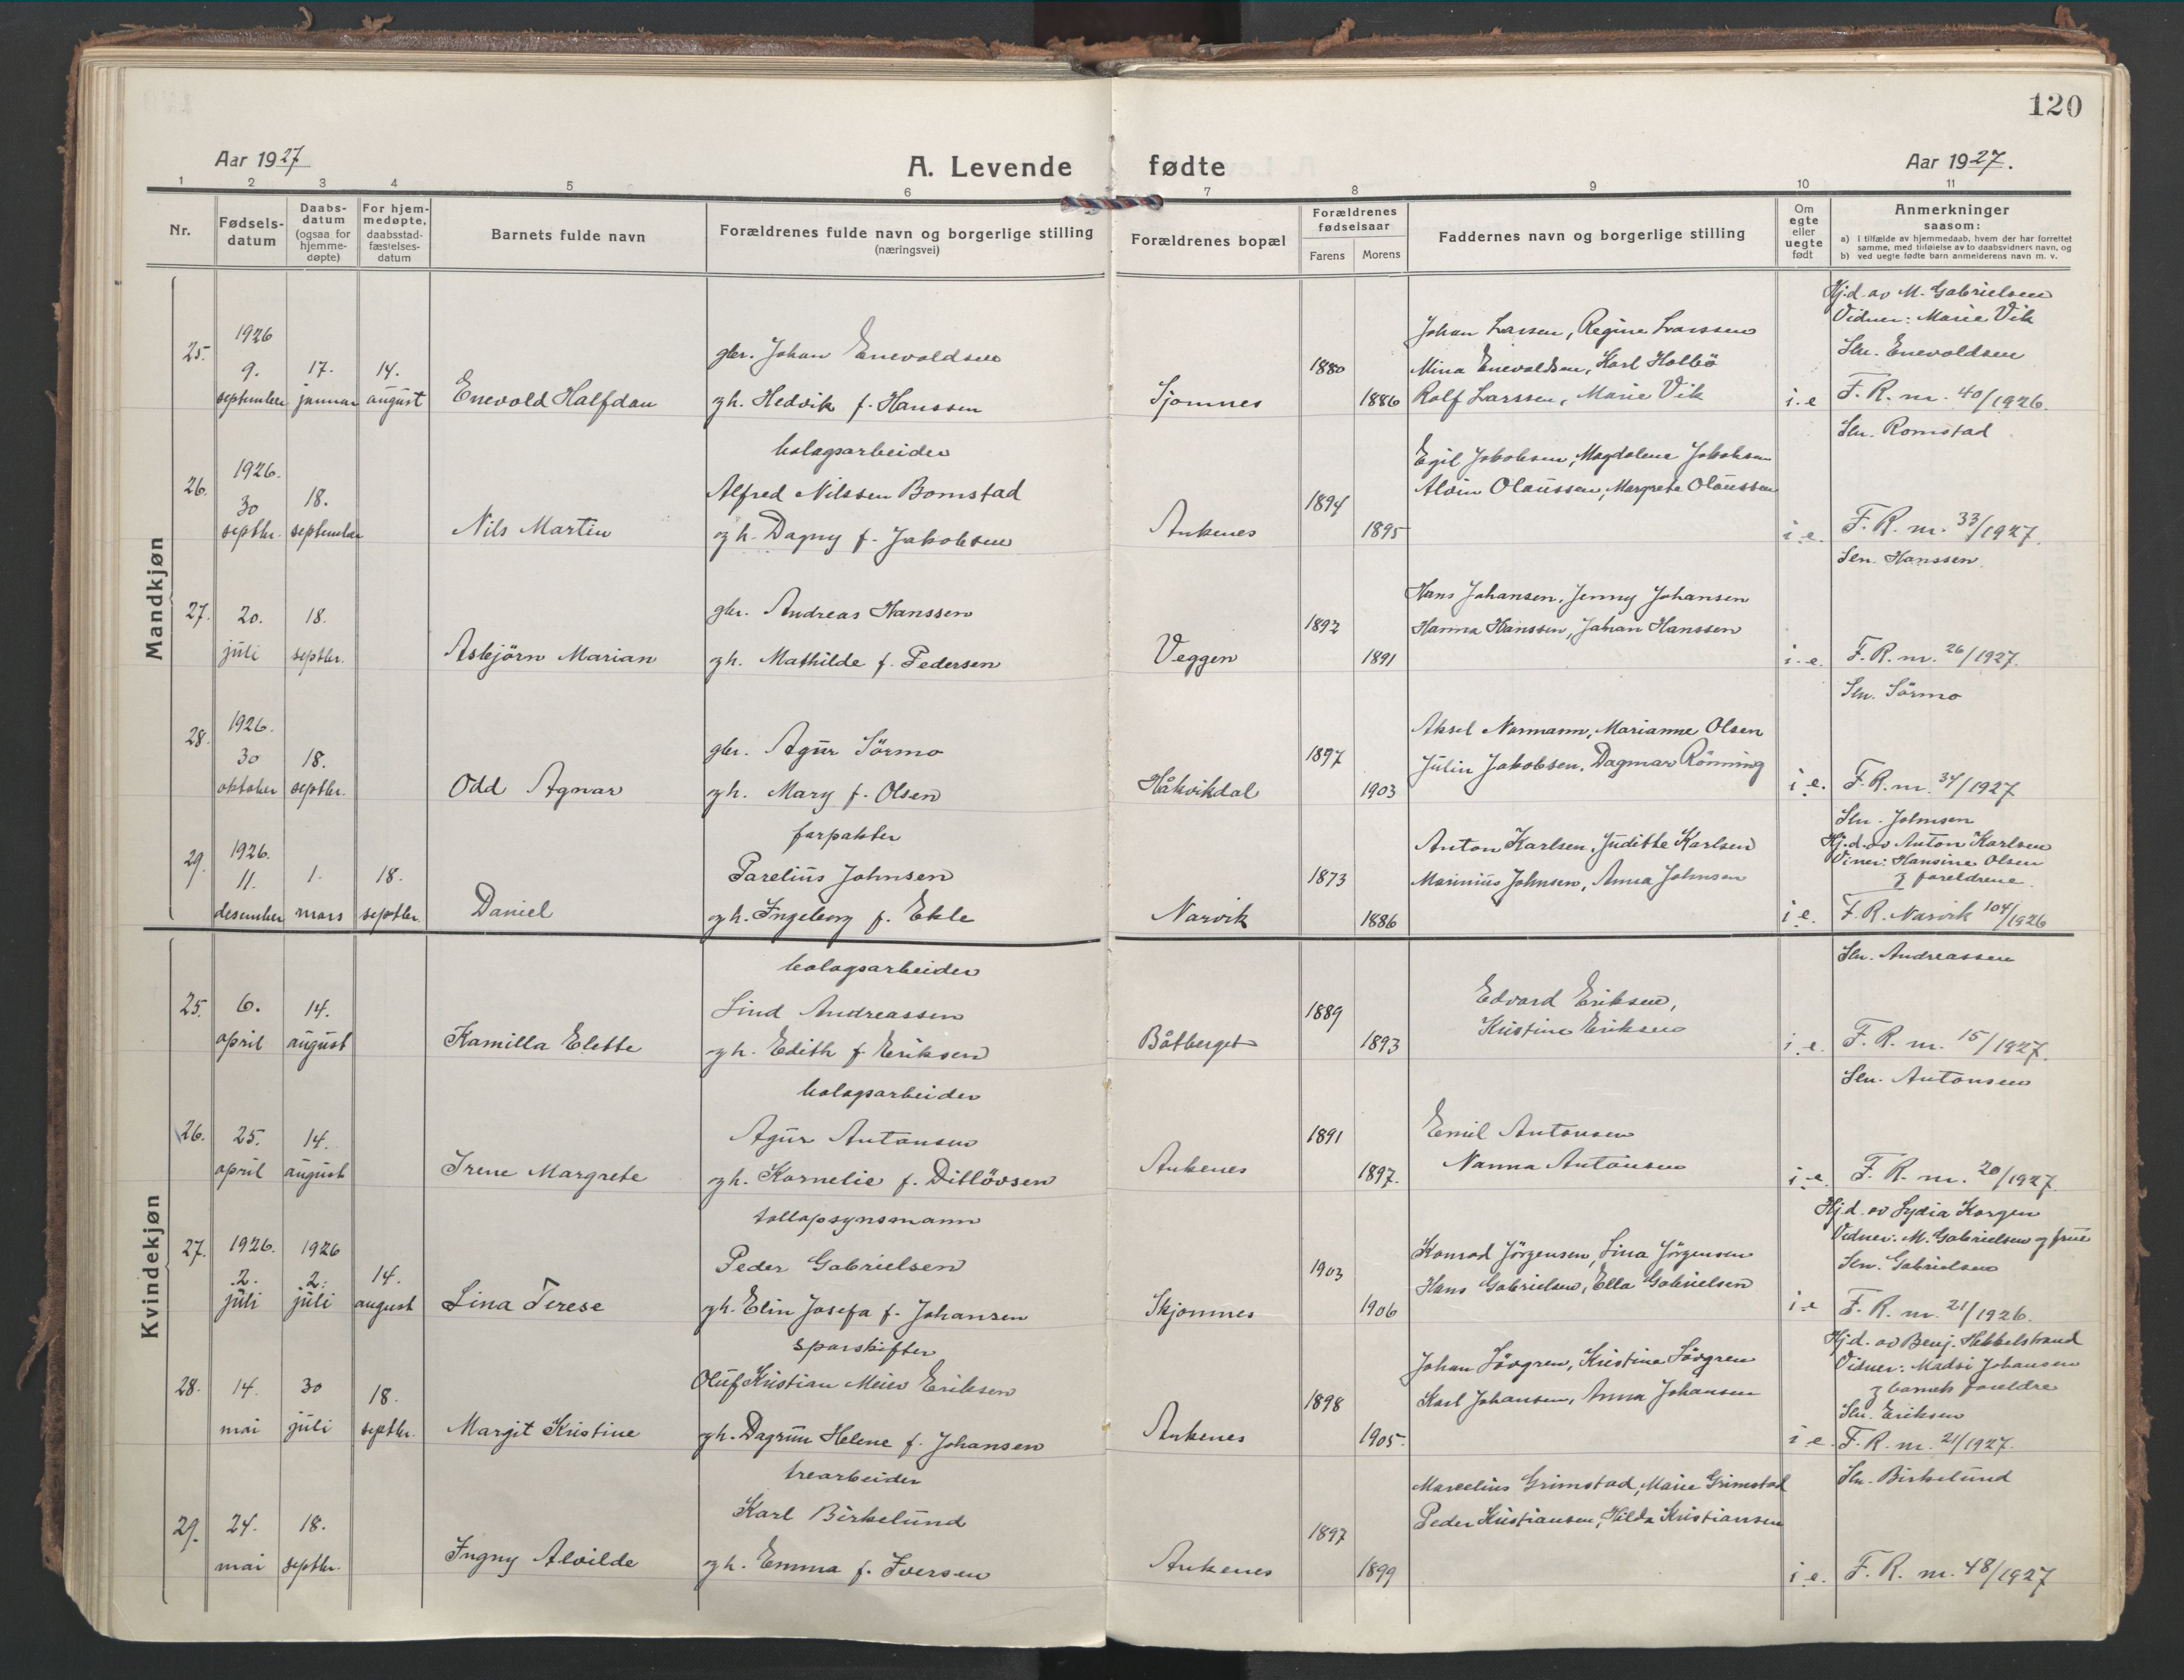 120
Aar 1927
A. Levende fødte
Aar 1927.
1 2 3 4 5 6 7 8 9 10 11
Nr.
Fødsels-
datum
Daabs-
datum
(ogsaa for
hjemme-
døpte)
For hjem-
medøpte,
daabsstad-
fæstelses-
datum
Barnets fulde navn
Forældrenes fulde navn og borgerlige stilling
(næringsvei)
Forældrenes bopæl
Forældrenes
fødselsaar
Farens Morens
Faddernes navn og borgerlige stilling
Om
egte
eller
uegte
født
Anmerkninger
saasom:
a) i tilfælde av hjemmedaab, hvem der har forrettet
samme, med tilføielse av to daabsvidners navn, og
b) ved uegte fødte barn anmelderens navn m. v.
Mandkjøn
25.
1926
9.
september
17.
januar
14.
august
Enevold Halfdan
gbr. Johan Enevoldsen
og h. Hedvik f. Hanssen
Sjomnes
1880
1886
Johan Larsen, Regine Larssen
Mina Enevoldsen, Karl Holbö
Rolf Larssen, Marie Vik
i. e
Hj.d. av M. Gabrielsen
Vidner: Marie Vik
Sln. Enevoldsen
F. R. nr. 40/1926.
26.
1926.
30
septbr.
18.
september
Nils Martin
bolagsarbeider
Alfred Nilssen Bomstad
og h. Dagny f. Jakobsen
Ankenes
1894
1895
Egil Jakobsen, Magdalene Jakobsen
Alvin Olaussen, Margrete Olaussen
i. e.
Sln. Romstad
F. R. nr. 33/1927.
27.
20.
juli
18.
septbr.
Asbjörn Marian
gbr. Andreas Hanssen
og h. Mathilde f. Pedersen
Veggen
1892
1891
Hans Johansen, Jenny Johansen
Hanna Hanssen, Johan Hanssen
i. e.
Sln. Hanssen
F. R. nr. 26/1927.
28.
1926.
30
oktober
18.
septbr.
Odd Agnar
gbr. Agur Sörmo
og h. Mary f. Olsen
Håkvikdal
1897
1903
Aksel Normann, Marianne Olsen
Julin Jakobsen, Dagmar Rönning
i. e.
Sln. Sörmo
F. R. nr. 34/1927
29.
1926.
11.
desember
1.
mars
18.
septbr.
Daniel
forpakter
Parelius Johnsen
og h. Ingeborg f. Ekle
Narvik
1873
1886
Anton Karlsen, Judithe Karlsen
Marinius Johnsen, Anna Johnsen
i e.
Sln. Johnsen
Hj.d. av Anton Karlsen
Viner: Hansine Olsen
og foreldrene.
F. R. Narvik 104/1926
Kvindekjøn
25.
6.
april
14.
august
Kamilla Elette
bolagsarbeider
Lind Andreassen
og h. Edith f Eriksen
Båtberget
1889
1893
Edvard Eriksen,
Kristine Eriksen
i. e.
Sln. Andreassen
F. R. nr. 15/1927.
26.
25.
april
14.
august
Irene Margrete
bolagsarbeider
Agur Antonsen
og h. Kornelie f. Ditlövsen
Ankenes
1891
1897.
Emil Antonsen
Nanna Antonsen
i. e.
Sln. Antonsen
F. R. nr. 20/1927.
27.
1926.
2.
juli
1926
2.
juli
14.
august
Lina Terese
tollopsynsmann
Peder Gabrielsen
og h. Elin Josefa f. Johansen
Skjomnes
1903
1906
Konrad Jörgensen, Lina Jörgensen
Hans Gabrielsen, Ella Gabrielsen
i. e
Hj.d. av Lydia Korgen
Vidner: M. Gabrielsen og frue
Sln. Gabrielsen
F. R. nr. 21/1926.
28.
14.
mai
30
juli
18.
septbr.
Margit Kristine
sporskifter
Oluf Kristian Meier Eriksen
og h. Dagrun Helene f. Johansen
Ankenes
1898
1905.
Johan Lövgren, Kristine Lövgren
Karl Johansen, Anna Johansen
i e.
Hj.d. av Benj. Hebbelstrand
Vidner: Madsi Johansen
og barnets foreldre
Sln. Eriksen
F. R. nr. 21/1927.
29.
24.
mai
18.
septbr.
Ingny Alvilde
trearbeider
Karl Birkelund
og h. Emma f. Iversen
Ankenes
1897
1899
Marcelius Grimstad, Marie Grimstad
Peder Kristiansen, Hilda Kristiansen
i. e.
Sln. Birkelund
F. R. nr. 48/1927